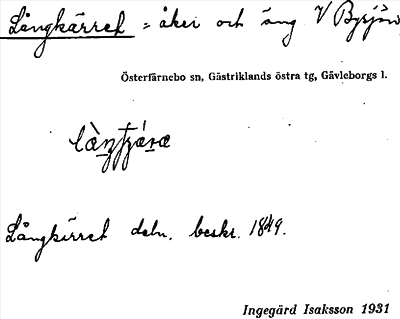 Långkärret = åker och äng V Bysjön
Österfärnebo sn, Gästriklands östra tg, Gävleborgs l.
Långkärret deln. beskr. 1849.
Ingegärd Isaksson 1931